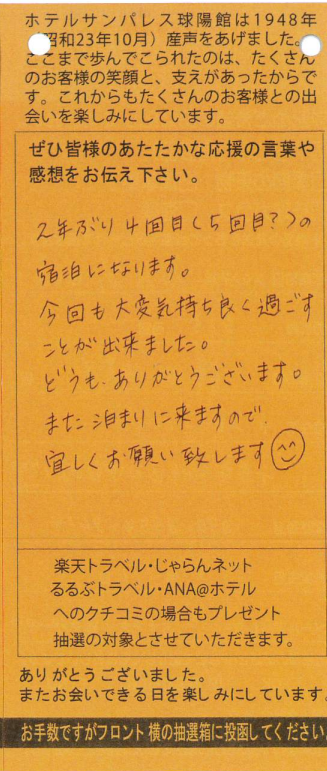 ホテルサンパレス球陽館は1948年
昭和23年10月）産声をあげました。
ここまで歩んでこられたのは、たくさん
のお客様の笑顔と、支えがあったからで
す。これからもたくさんのお客様との出
会いを楽しみにしています。
ぜひ皆様のあたたかな応援の言葉や
感想をお伝え下さい。
2年ぶり4回目（5回目?）の
宿泊になります。
今回も大変気持ち良く過ごす
ことが出来ました。
どうも、ありがとうございます。
また泊まりに来ますので、
宜しくお願い致します
楽天トラベル・じゃらんネット
るるぶトラベル・ANA@ホテル
へのクチコミの場合もプレゼント
抽選の対象とさせていただきます。
ありがとうございました。
またお会いできる日を楽しみにしています。
お手数ですがフロント横の抽選箱に投函してください。